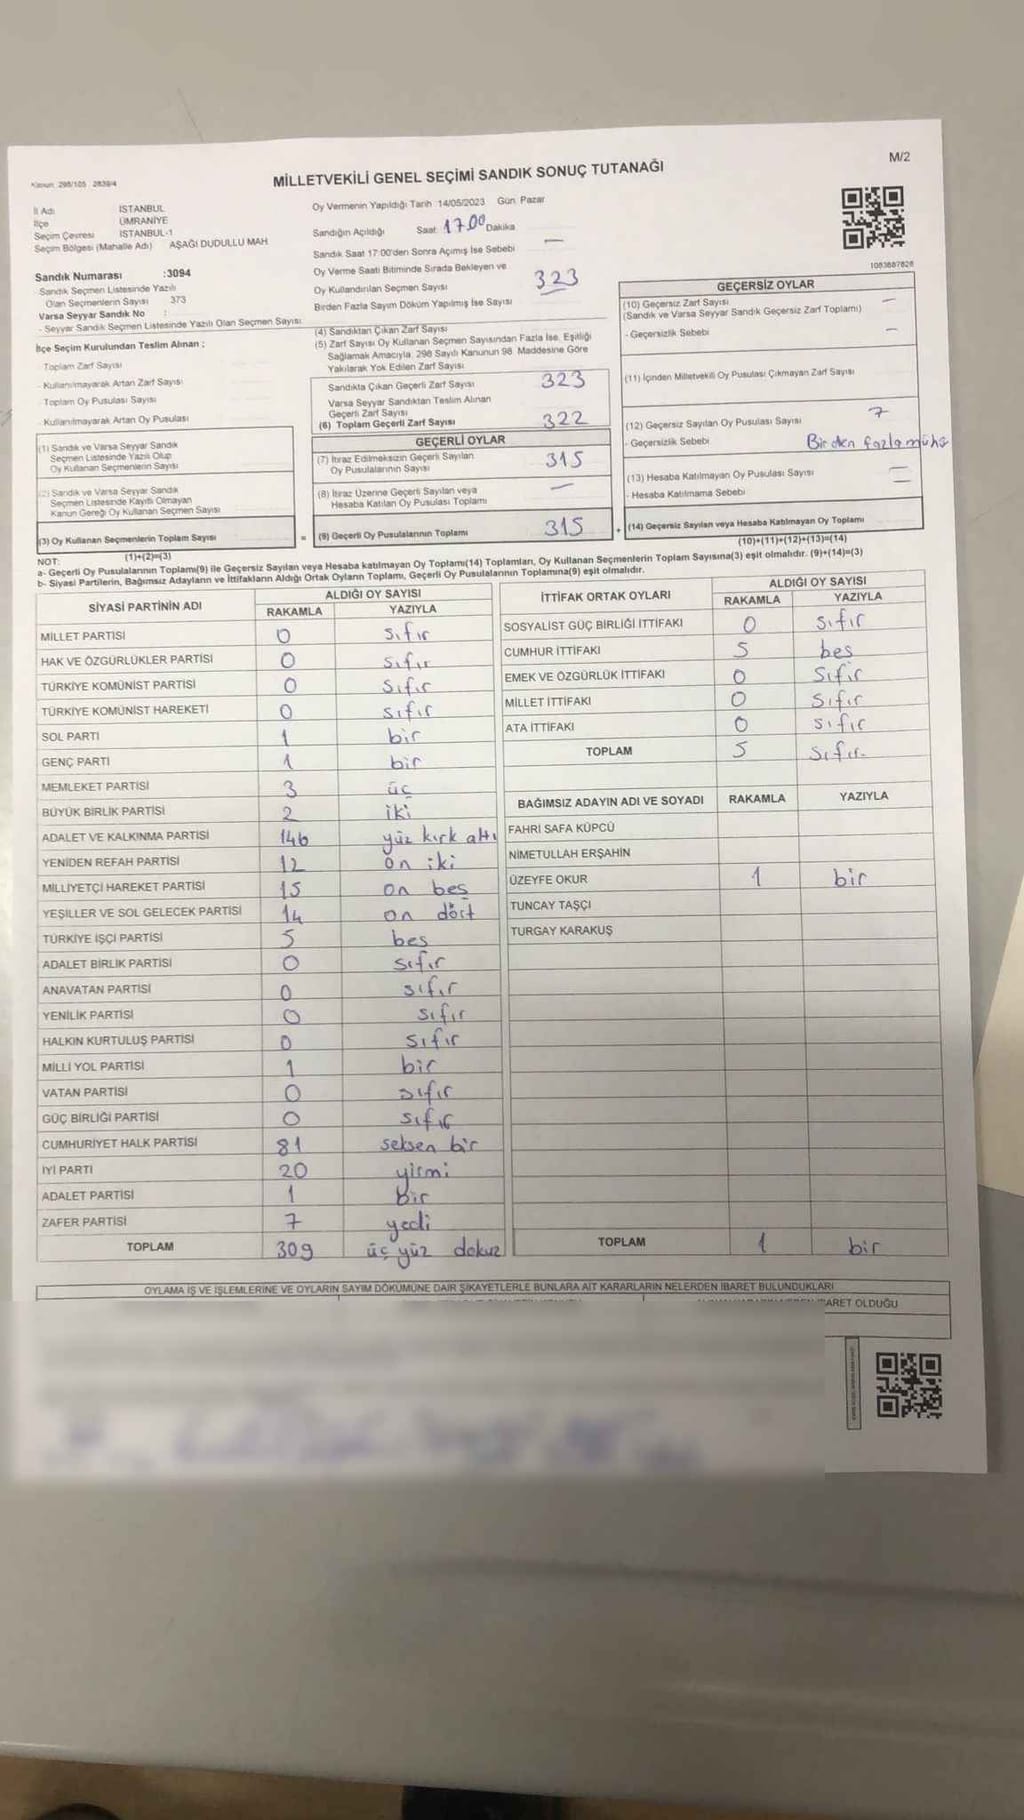 M/2
MİLLETVEKİLİ GENEL SEÇİMİ SANDIK SONUÇ TUTANAĞI
İl Adı İSTANBUL
İlçe ÜMRANİYE
Seçim Çevresi İSTANBUL-1
Seçim Bölgesi (Mahalle Adı) AŞAĞI DUDULLU MAH
Sandık Numarası :3094
Sandık Seçmen Listesinde Yazılı
Olan Seçmenlerin Sayısı 373
Varsa Seyyar Sandık No :
- Seyyar Sandık Seçmen Listesinde Yazılı Olan Seçmen Sayısı
İlçe Seçim Kurulundan Teslim Alınan :
Toplam Zarf Sayısı
- Kullanılmayarak Artan Zarf Sayısı
- Toplam Oy Pusulası Sayısı
- Kullanılmayarak Artan Oy Pusulası
(1) Sandık ve Varsa Seyyar Sandık
Seçmen Listesinde Yazılı Olup
Oy Kullanan Seçmenlerin Sayısı
(2) Sandık ve Varsa Seyyar Sandık
Seçmen Listesinde Kayıtlı Olmayan
Kanun Gereği Oy Kullanan Seçmen Sayısı
(3) Oy Kullanan Seçmenlerin Toplam Sayısı
(1)+(2)=(3)
Oy Vermenin Yapıldığı Tarih :14/05/2023 Gün: Pazar
Sandığın Açıldığı Saat: 17.00 Dakika
Sandık Saat 17:00'den Sonra Açımış İse Sebebi —
Oy Verme Saati Bitiminde Sırada Bekleyen ve
Oy Kullandırılan Seçmen Sayısı 323
Birden Fazla Sayım Döküm Yapılmış İse Sayısı
(4) Sandıktan Çıkan Zarf Sayısı
(5) Zarf Sayısı Oy Kullanan Seçmen Sayısından Fazla İse, Eşitliği
Sağlamak Amacıyla, 298 Sayılı Kanunun 98. Maddesine Göre
Yakılarak Yok Edilen Zarf Sayısı
Sandıkta Çıkan Geçerli Zarf Sayısı 323
Varsa Seyyar Sandıktan Teslim Alınan
Geçerli Zarf Sayısı
(6) Toplam Geçerli Zarf Sayısı 322
GEÇERLİ OYLAR
(7) İtiraz Edilmeksizin Geçerli Sayılan
Oy Pusulalarının Sayısı 315
(8) İtiraz Üzerine Geçerli Sayılan veya
Hesaba Katılan Oy Pusulası Toplamı —
= (9) Geçerli Oy Pusulalarının Toplamı 315 +
1083687828
GEÇERSİZ OYLAR
(10) Geçersiz Zarf Sayısı —
(Sandık ve Varsa Seyyar Sandık Geçersiz Zarf Toplamı)
- Geçersizlik Sebebi —
(11) İçinden Milletvekili Oy Pusulası Çıkmayan Zarf Sayısı
(12) Geçersiz Sayılan Oy Pusulası Sayısı 7
- Geçersizlik Sebebi Birden fazla mühü
(13) Hesaba Katılmayan Oy Pusulası Sayısı —
- Hesaba Katılmama Sebebi —
(14) Geçersiz Sayılan veya Hesaba Katılmayan Oy Toplamı
(10)+(11)+(12)+(13)=(14)
NOT:
a- Geçerli Oy Pusulalarının Toplamı(9) ile Geçersiz Sayılan veya Hesaba katılmayan Oy Toplamı(14) Toplamları, Oy Kullanan Seçmenlerin Toplam Sayısına(3) eşit olmalıdır. (9)+(14)=(3)
b- Siyasi Partilerin, Bağımsız Adayların ve İttifakların Aldığı Ortak Oyların Toplamı, Geçerli Oy Pusulalarının Toplamına(9) eşit olmalıdır.
SİYASİ PARTİNİN ADI ALDIĞI OY SAYISI
RAKAMLA YAZIYLA
MİLLET PARTİSİ 0 sıfır
HAK VE ÖZGÜRLÜKLER PARTİSİ 0 sıfır
TÜRKİYE KOMÜNİST PARTİSİ 0 sıfır
TÜRKİYE KOMÜNİST HAREKETİ 0 sıfır
SOL PARTİ 1 bir
GENÇ PARTİ 1 bir
MEMLEKET PARTİSİ 3 üç
BÜYÜK BİRLİK PARTİSİ 2 iki
ADALET VE KALKINMA PARTİSİ 146 yüz kırk altı
YENİDEN REFAH PARTİSİ 12 on iki
MİLLİYETÇİ HAREKET PARTİSİ 15 on beş
YEŞİLLER VE SOL GELECEK PARTİSİ 14 on dört
TÜRKİYE İŞÇİ PARTİSİ 5 beş
ADALET BİRLİK PARTİSİ 0 sıfır
ANAVATAN PARTİSİ 0 sıfır
YENİLİK PARTİSİ 0 sıfır
HALKIN KURTULUŞ PARTİSİ 0 sıfır
MİLLİ YOL PARTİSİ 1 bir
VATAN PARTİSİ 0 sıfır
GÜÇ BİRLİĞİ PARTİSİ 0 sıfır
CUMHURİYET HALK PARTİSİ 81 seksen bir
İYİ PARTİ 20 yirmi
ADALET PARTİSİ 1 bir
ZAFER PARTİSİ 7 yedi
TOPLAM 309 üç yüz dokuz
İTTİFAK ORTAK OYLARI ALDIĞI OY SAYISI
RAKAMLA YAZIYLA
SOSYALİST GÜÇ BİRLİĞİ İTTİFAKI 0 sıfır
CUMHUR İTTİFAKI 5 beş
EMEK VE ÖZGÜRLÜK İTTİFAKI 0 sıfır
MİLLET İTTİFAKI 0 sıfır
ATA İTTİFAKI 0 sıfır
TOPLAM 5 sıfır
BAĞIMSIZ ADAYIN ADI VE SOYADI RAKAMLA YAZIYLA
FAHRİ SAFA KÜPCÜ
NİMETULLAH ERŞAHİN
ÜZEYFE OKUR 1 bir
TUNCAY TAŞÇI
TURGAY KARAKUŞ
TOPLAM 1 bir
OYLAMA İŞ VE İŞLEMLERİNE VE OYLARIN SAYIM DÖKÜMÜNE DAİR ŞİKAYETLERLE BUNLARA AİT KARARLARIN NELERDEN İBARET BULUNDUKLARI
ARET OLDUĞU